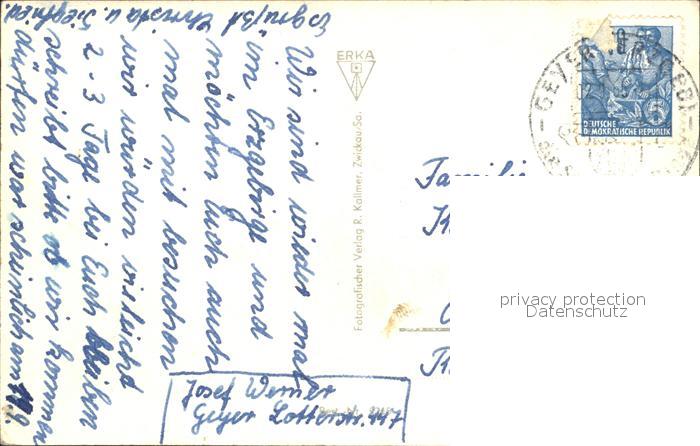 Wir sind wieder mal
im Erzgebirge und
möchten Euch auch
mal mit besuchen
wir würden vileicht
2-3 Tage bei Euch bleiben
schreibt bitte ob wir kommen
dürfen warscheinlich am 19.
Es grüßt Christa u. Siegfried.
ERKA
Fotografischer Verlag R. Kallmer, Zwickau/Sa.
DEUTSCHE
DEMOKRATISCHE REPUBLIK
5
GEYER
Familie
privacy protection
Datenschutz
Josef Werner
Geyer Lotterstr. 117